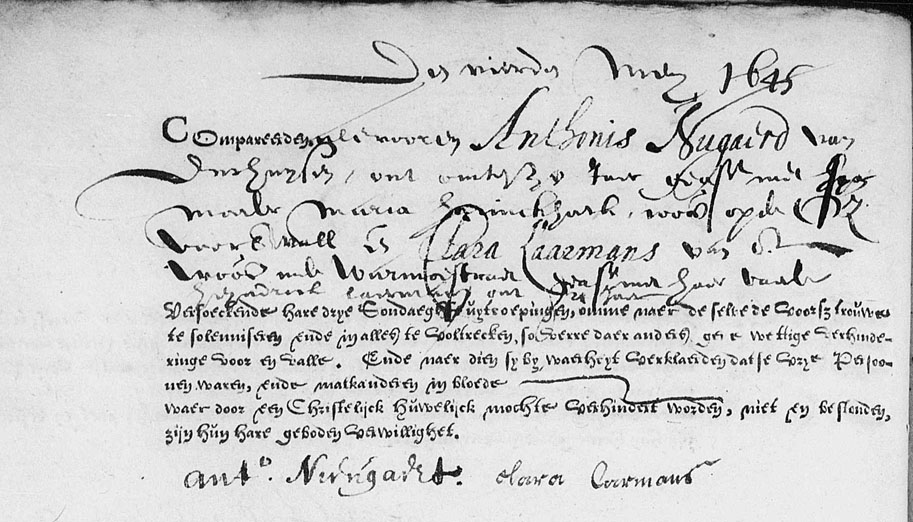 Den vierden Mey 1645
Compareerden als vooren Anthonis Nugaerd van
out Jaer geass met
Maria woon op de
Clara Laarmans van A
woon inde Warmoesstraet geass met haer vader
hendrick out Jaer
Versoeckende hare drye Sondaeghse uytroepingen, omme naer de selve de voorsz trouwe
te solemniseren ende in alles te voltrecken, so verre daer anders geene wettige verhinde-
ringe voor en valle. Ende naer dien sy by waerheyt verklaerden datse vrye Persoo-
nen waren, ende malkanderen in bloede
waer door een Christelijck huwelijck mochte verhindert worden, niet en bestonden,
zijn hun hare geboden verwillighet.
clara Laarmans